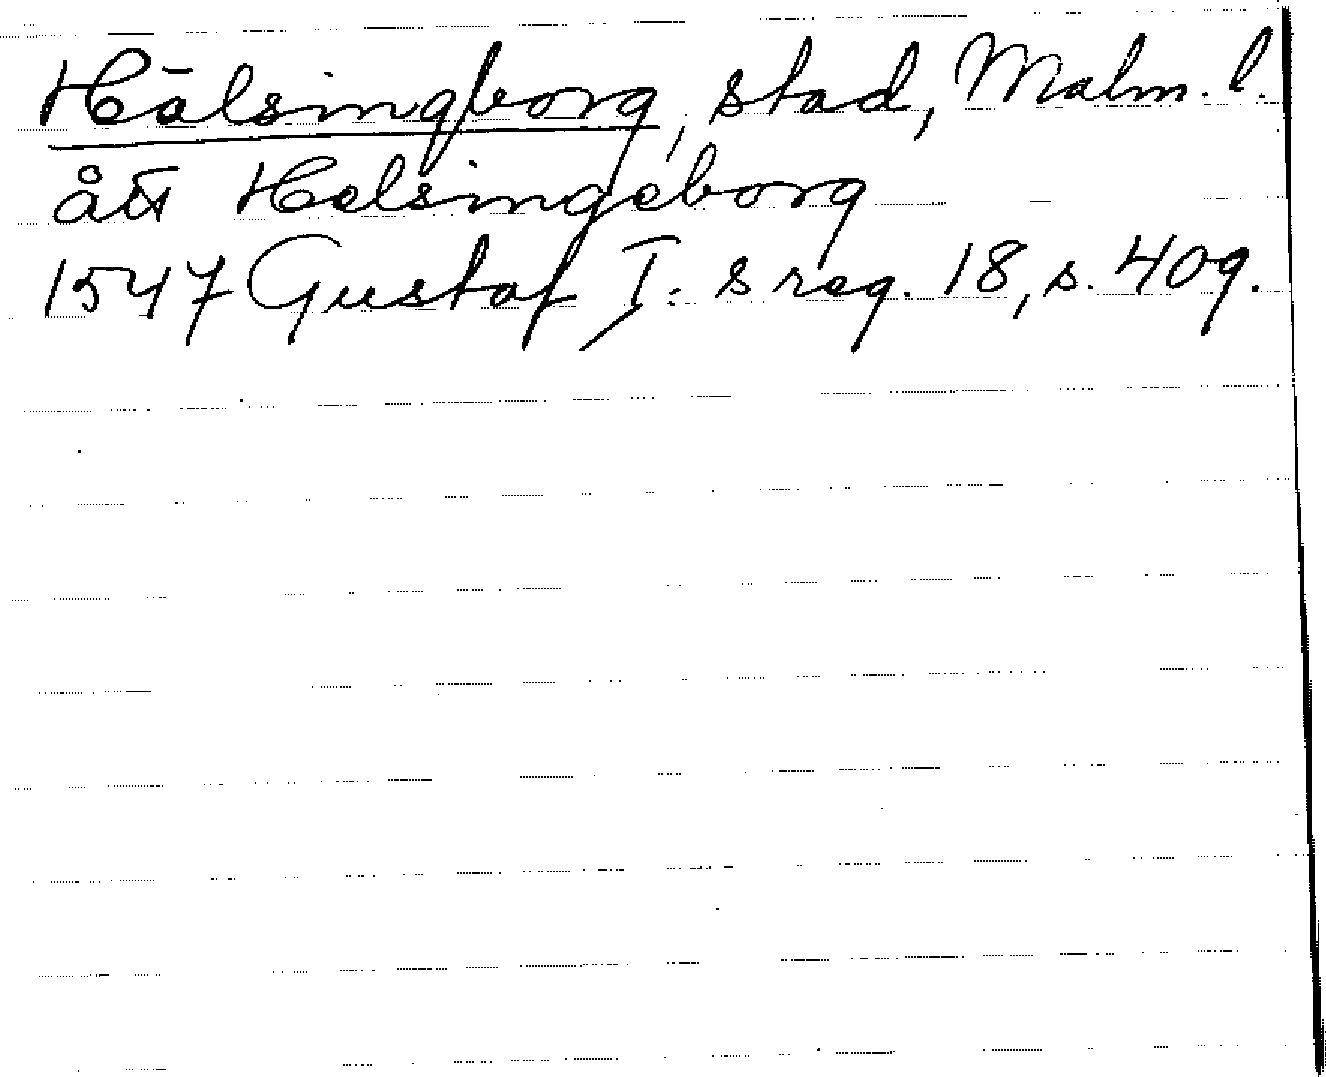 Hälsingborg, stad, Malm. l.
ått Helsingeborg
1547 Gustaf I:s reg. 18, s. 409.